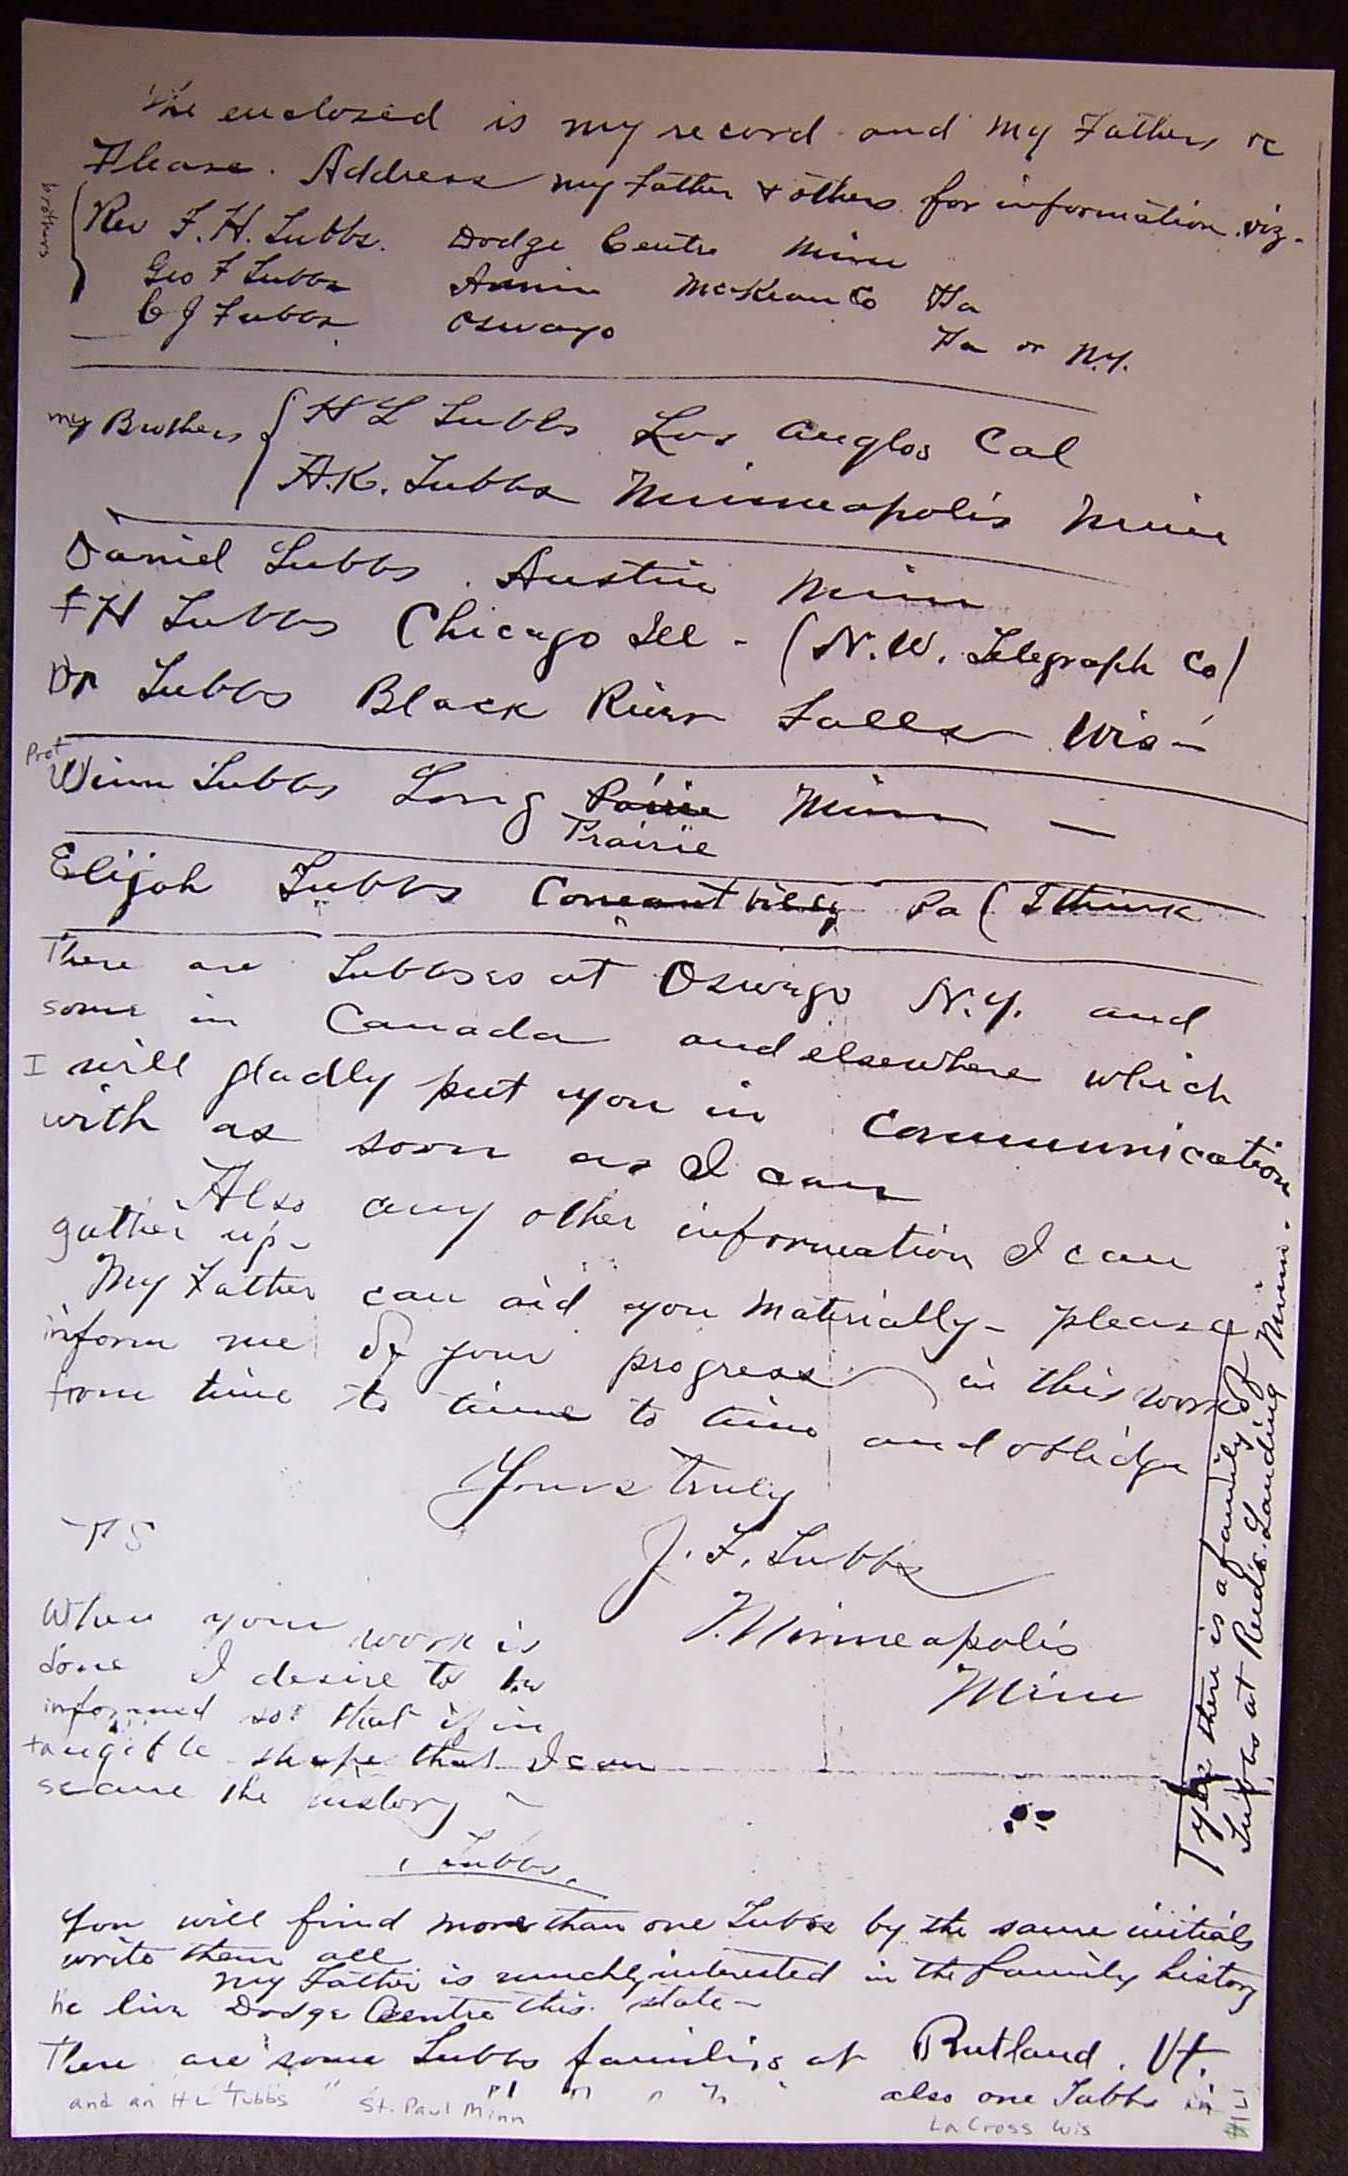 The enclosed is my record and my Fathers &c
Please. Address my Father & others for information. viz-
brothers
Rev F. H. Tubbs. Dodge Centre Minn
Geo F Tubbs Annin McKean Co Pa
C J Tubbs Oswayo Pa or N.Y.
my Brothers
H L Tubbs Los Anglos Cal
A.K. Tubbs Minneapolis Minn
Daniel Tubbs. Austin Minn
F H Tubbs Chicago Ill - (N.W. Telegraph Co)
Dr Tubbs Black River Falls Wis -
Prof
Winn Tubbs Long Minn -
Prairie
Elijah Tubbs Coneautville Pa (I think
There are Tubbses at Oswego N.Y. and
some in Canada and elsewhere which
I will gladly put you in communication
with as soon as I can
Also any other information I can
gather up-
My Father can aid you materially - please
inform me of your progress in this work
from time to time to time and oblidge
Yours truly
J. F. Tubbs
Minneapolis
Minn
PS
When your work is
done I desire to be
informed so that if in
tangible shape that I can
secure the history -
yes there is a family of
Tubbs at Reed's Landing Minn.
Tubbs.
You will find more than one Tubbs by the same initials
write them all
my Father is muchly interested in the family history
he live Dodge Centre this state -
There are some Tubbs families at Rutland. Vt.
and an H L Tubbs " St. Paul Minn " " " " also one Tubbs in
La Cross Wis